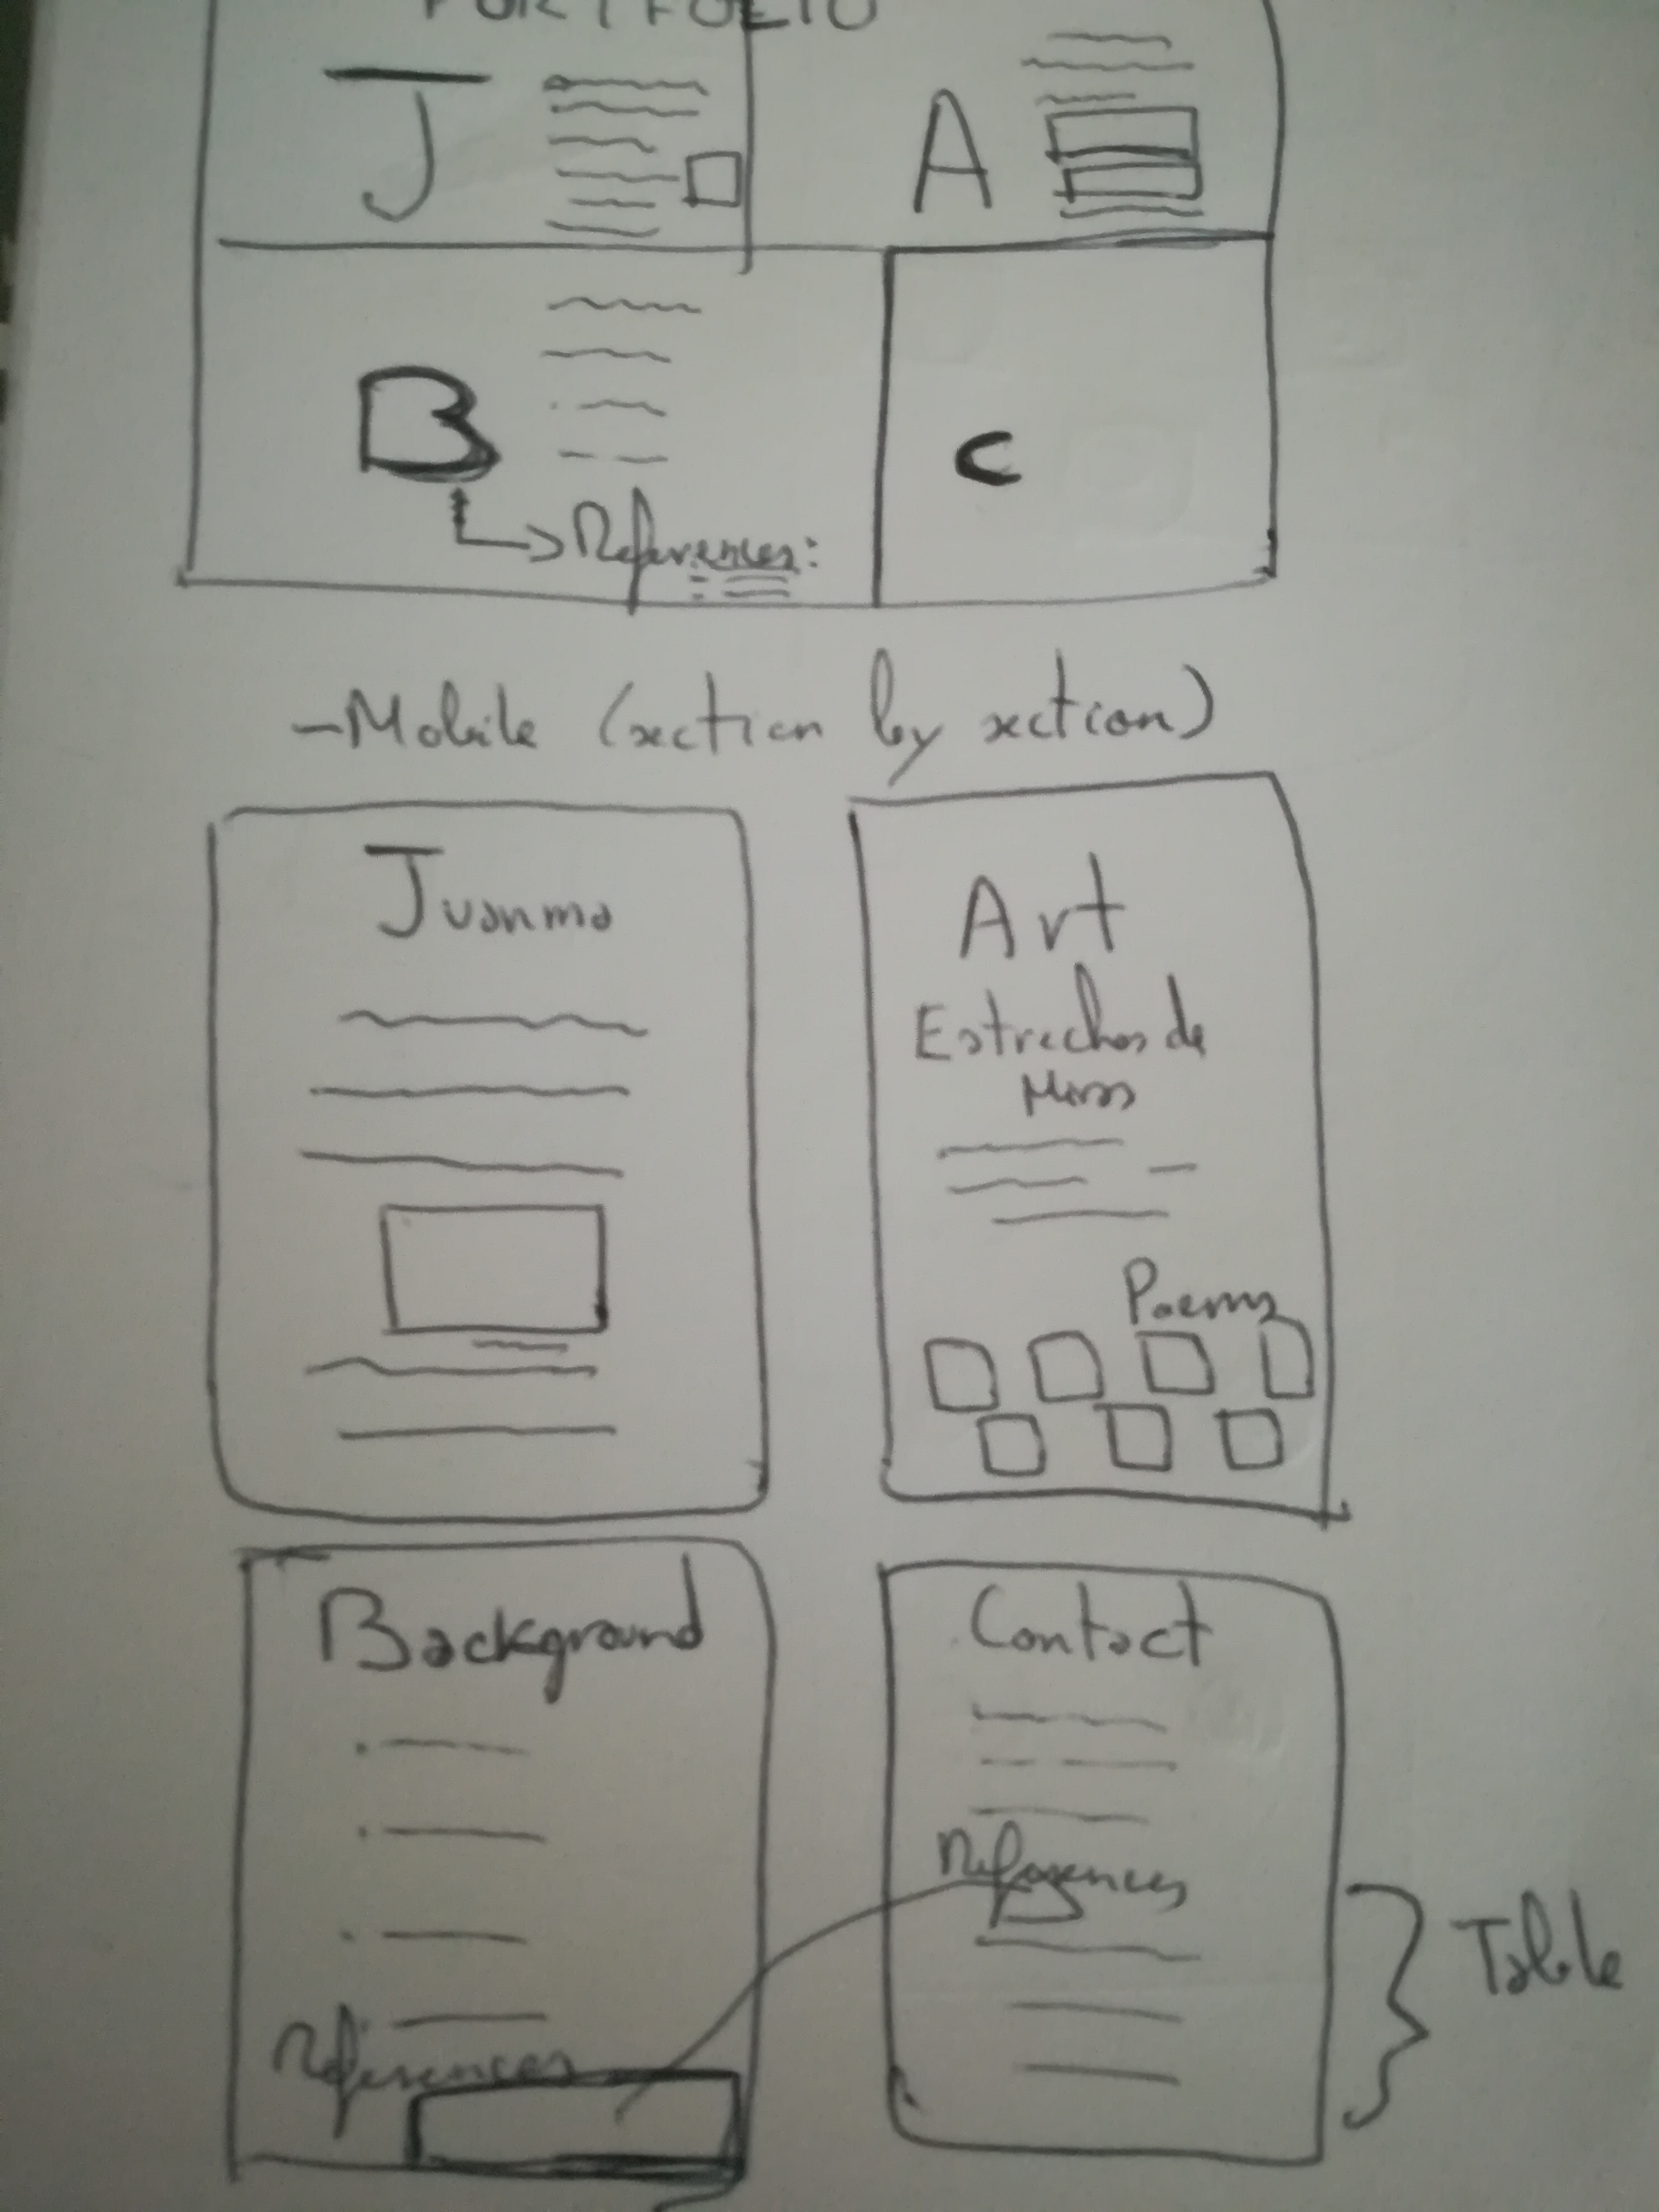 PORTFOLIO
J
A
B
C
References:
-Mobile (section by section)
Juanma
Art
Estrechos de
Miras
Poems
Background
Contact
References
Table
References